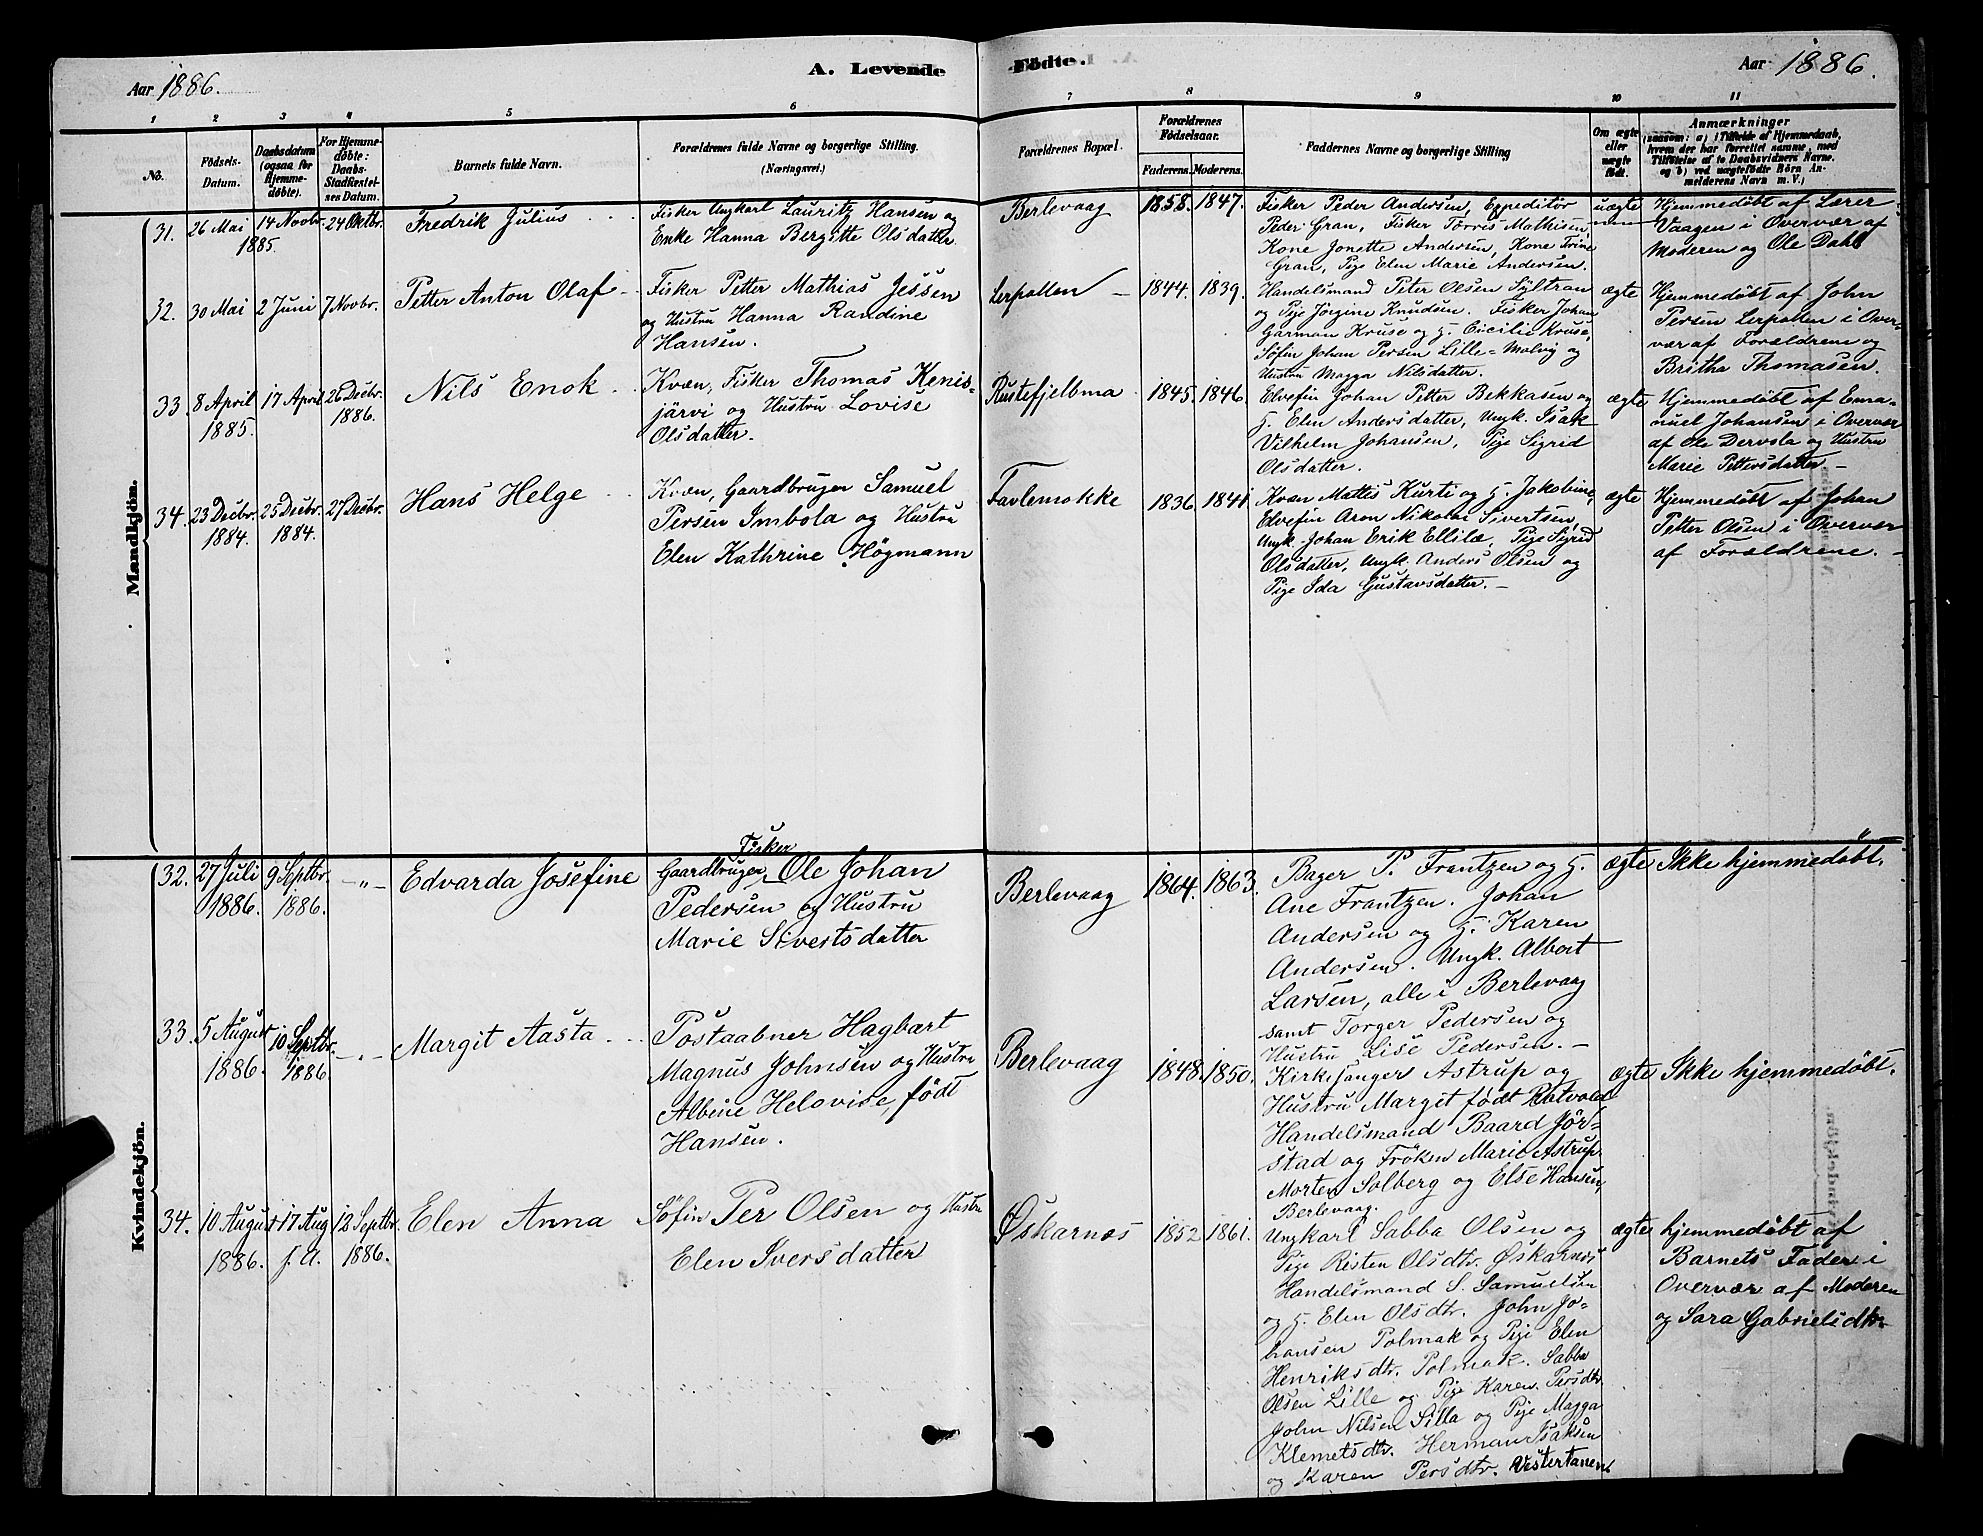 Aar 1886.
A. Levende
Fødte.
Aar 1886.
1 2 3 4 5 6 7 8 9 10 11
No.
Fødsels-
Datum.
Daabsdatum
(ogsaa for
Hjemme-
døbte).
For Hjemme-
døbte:
Daabs-
Stadfæstel-
ses Datum.
Barnets fulde Navn.
Forældrenes fulde Navne og borgerlige Stilling.
(Næringsvei.)
Forældrenes Bopæl.
Forældrenes
Fødselsaar.
Faderens. Moderens.
Faddernes Navne og borgerlige Stilling
Om ægte
eller
uægte
født.
Anmærkninger
(saasom: a) i Tilfælde af Hjemmedaab,
hvem der har forrettet samme, med
Tilføielse af to Daabsvidners Navne.
og b) ved uægtefødte Børn An-
melderens Navn m. V.)
Mandkjøn.
31.
26 Mai
1885.
14 Novbr.
24 Oktbr.
Fredrik Julius
Fisker Ungkarl Lauritz Hansen og
Enke Hanna Bergitte Olsdatter.
Berlevaag
1858. 1847.
Fisker Peder Andersen, Expeditør
Peder Gran, Fisker Torris Mathisen,
Kone Jonette Andersen, Kone Trine
Gran, Pige Elen Marie Andersen.
uægte
Hjemmedøbt af Lærer
Vaagen i Overvær af
Moderen og Ole Dahl
32.
30 Mai
2 Juni
7 Novbr.
Petter Anton Olaf
Fisker Petter Mathias Jessen
og Hustru Hanna Randine
Hansen.
Lerpollen
1844. 1839.
Handelsmand Peter Olsen Syltran
og Pige Jörgine Knudsen. Fisker Johan
Garman Kruse og H. Cicilie Kruse,
Søfin Johan Persen Lille-Molvig og
Hustru Magga Nilsdatter.
ægte
Hjemmedøbt af John
Persen Lerpollen i Over-
vær af Forældrene og
Britha Thomasen.
33.
8 April
1885.
17 April
26 Decbr.
1886.
Nils Enok
Kvæn, Fisker Thomas Kenis-
järvi og Hustru Lovise
Olsdatter.
Rustefjelbma
1845. 1846.
Elvefin Johan Petter Bekkasen og
H. Elen Andersdatter, Ungk. Isak
Vilhelm Johansen, Pige Sigrid
Olsdatter.
ægte
Hjemmedøbt af Ema-
nuel Johansen i Overvær
af Ole Dervola og Hustru
Marie Pettersdatter.
34.
23 Decbr.
1884.
25 Decbr.
1884.
27 Decbr.
Hans Helge
Kvæn, Gaardbruger Samuel
Persen Imbola og Hustru
Elen Kathrine Högmann
Favlemokke
1836. 1841
Kvæn Mattis Kurti og H. Jakobine,
Elvefin Aron Nikolai Sivertsen,
Ungk. Johan Erik Ellilæ, Pige Sigrid
Olsdatter, Ungk. Anders Olsen og
Pige Ida Gustavsdatter. –
ægte
Hjemmedøbt af Johan
Petter Olsen i Overvær
af Forældrene. –
Kvindekjøn.
32.
27 Juli
1886.
9 Septbr.
1886.
–„–
Edvarda Josefine
Fisker
Gaardbruger Ole Johan
Pedersen og Hustru
Marie Sivertsdatter
Berlevaag
1864. 1863.
Bager P. Frantzen og H.
Ane Frantzen. Johan
Andersen og H. Karen
Andersen. Ungk. Albert
Larsen, alle i Berlevaag
samt Torger Pedersen og
Hustru Lise Pedersen. –
ægte
Ikke hjemmedøbt.
33.
5 August
1886.
10 Septbr.
1886.
–„–
Margit Aasta
Postaabner Hagbart
Magnus Johnsen og Hustru
Albine Helovise, født
Hansen.
Berlevaag
1848. 1850.
Kirkesanger Astrup og
Hustru Marget født Ratvold,
Handelsmand Baard Jör-
stad og Fröken Marie Astrup.
Morten Solberg og Else Hansen,
Berlevaag.
ægte
Ikke hjemmedøbt.
34.
10 August
1886.
17 Aug
s. A.
12 Septbr.
1886.
Elen Anna
Søfin Per Olsen og Hustru
Elen Iversdatter
Øskarnæs
1852 1861.
Ungkarl Sabba Olsen og
Pige Risten Olsdtr. Øskarnæs
Handelsmand S. Samuelsen
og H. Elen Olsdtr. John Jo-
hansen Polmak og Pige Elen
Henriksdtr. Polmak. Sabba
Olsen Lille og Pige Karen Persdtr.
John Nilsen Silla og Pige Magga
Klemetsdtr. Herman Isaksen
og Karen Persdtr. Vestertanen
ægte
hjemmedøbt af
Barnets Fader i
Overvær af Moderen
og Sara Gabrielsdtr.